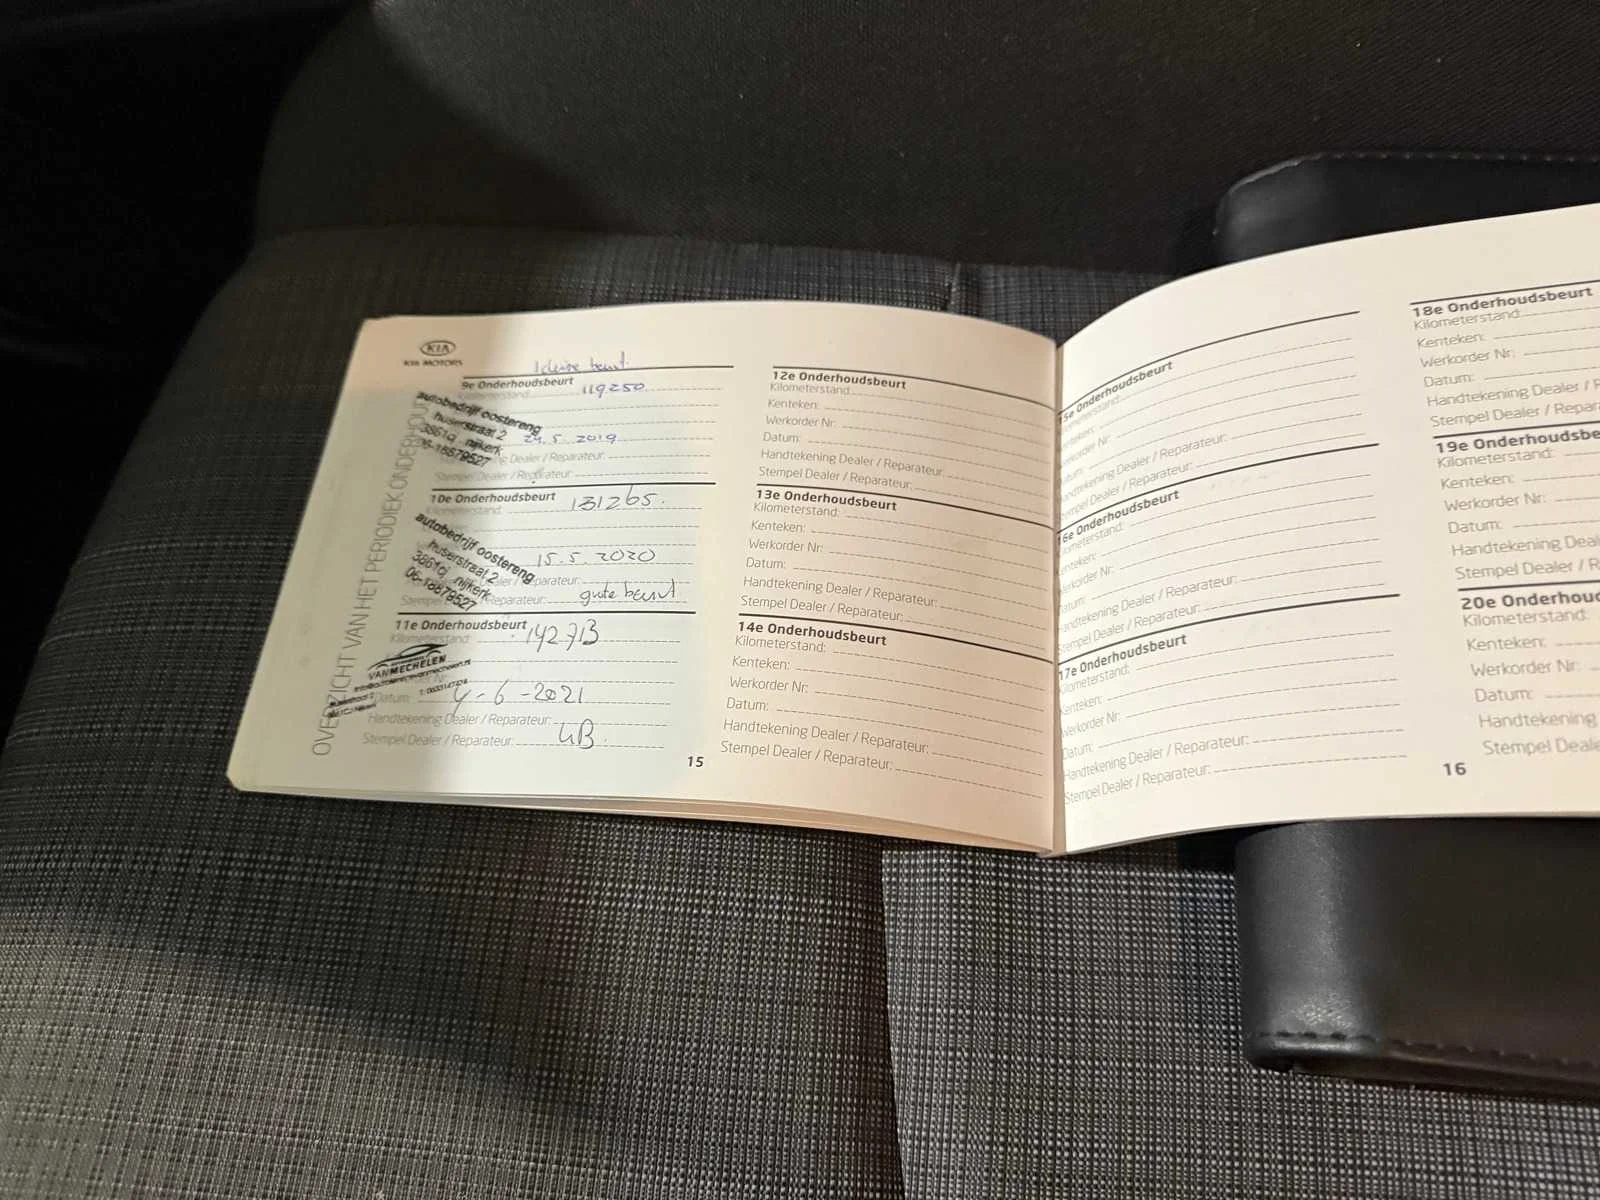 KIA
KIA MOTORS
OVERZICHT VAN HET PERIODIEK ONDERHOUD
kleine beurt
9e Onderhoudsbeurt
Kilometerstand: 119250
autobedrijf oostereng
huserstraat 2
3861cj nijkerk
06-18679527
24.5.2019
Handtekening Dealer / Reparateur:
Stempel Dealer / Reparateur:
10e Onderhoudsbeurt
Kilometerstand: 131265.
autobedrijf oostereng
huserstraat 2
3861cj nijkerk
06-18679527
15.5.2020
Dealer / Reparateur:
Stempel Dealer / Reparateur: gute beurt
11e Onderhoudsbeurt
Kilometerstand: 142713
VANMECHELEN
Datum: 4-6-2021
Handtekening Dealer / Reparateur:
Stempel Dealer / Reparateur: GB.
15
12e Onderhoudsbeurt
Kilometerstand:
Kenteken:
Werkorder Nr:
Datum:
Handtekening Dealer / Reparateur:
Stempel Dealer / Reparateur:
13e Onderhoudsbeurt
Kilometerstand:
Kenteken:
Werkorder Nr:
Datum:
Handtekening Dealer / Reparateur:
Stempel Dealer / Reparateur:
14e Onderhoudsbeurt
Kilometerstand:
Kenteken:
Werkorder Nr:
Datum:
Handtekening Dealer / Reparateur:
Stempel Dealer / Reparateur:
15e Onderhoudsbeurt
Kilometerstand:
Kenteken:
Werkorder Nr:
Datum:
Handtekening Dealer / Reparateur:
Stempel Dealer / Reparateur:
16e Onderhoudsbeurt
Kilometerstand:
Kenteken:
Werkorder Nr:
Datum:
Handtekening Dealer / Reparateur:
Stempel Dealer / Reparateur:
17e Onderhoudsbeurt
Kilometerstand:
Kenteken:
Werkorder Nr:
Datum:
Handtekening Dealer / Reparateur:
Stempel Dealer / Reparateur:
16
18e Onderhoudsbeurt
Kilometerstand:
Kenteken:
Werkorder Nr:
Datum:
Handtekening Dealer / R
Stempel Dealer / Repar
19e Onderhoudsbe
Kilometerstand:
Kenteken:
Werkorder Nr:
Datum:
Handtekening Deal
Stempel Dealer / R
20e Onderhoud
Kilometerstand:
Kenteken:
Werkorder Nr:
Datum:
Handtekening
Stempel Deale